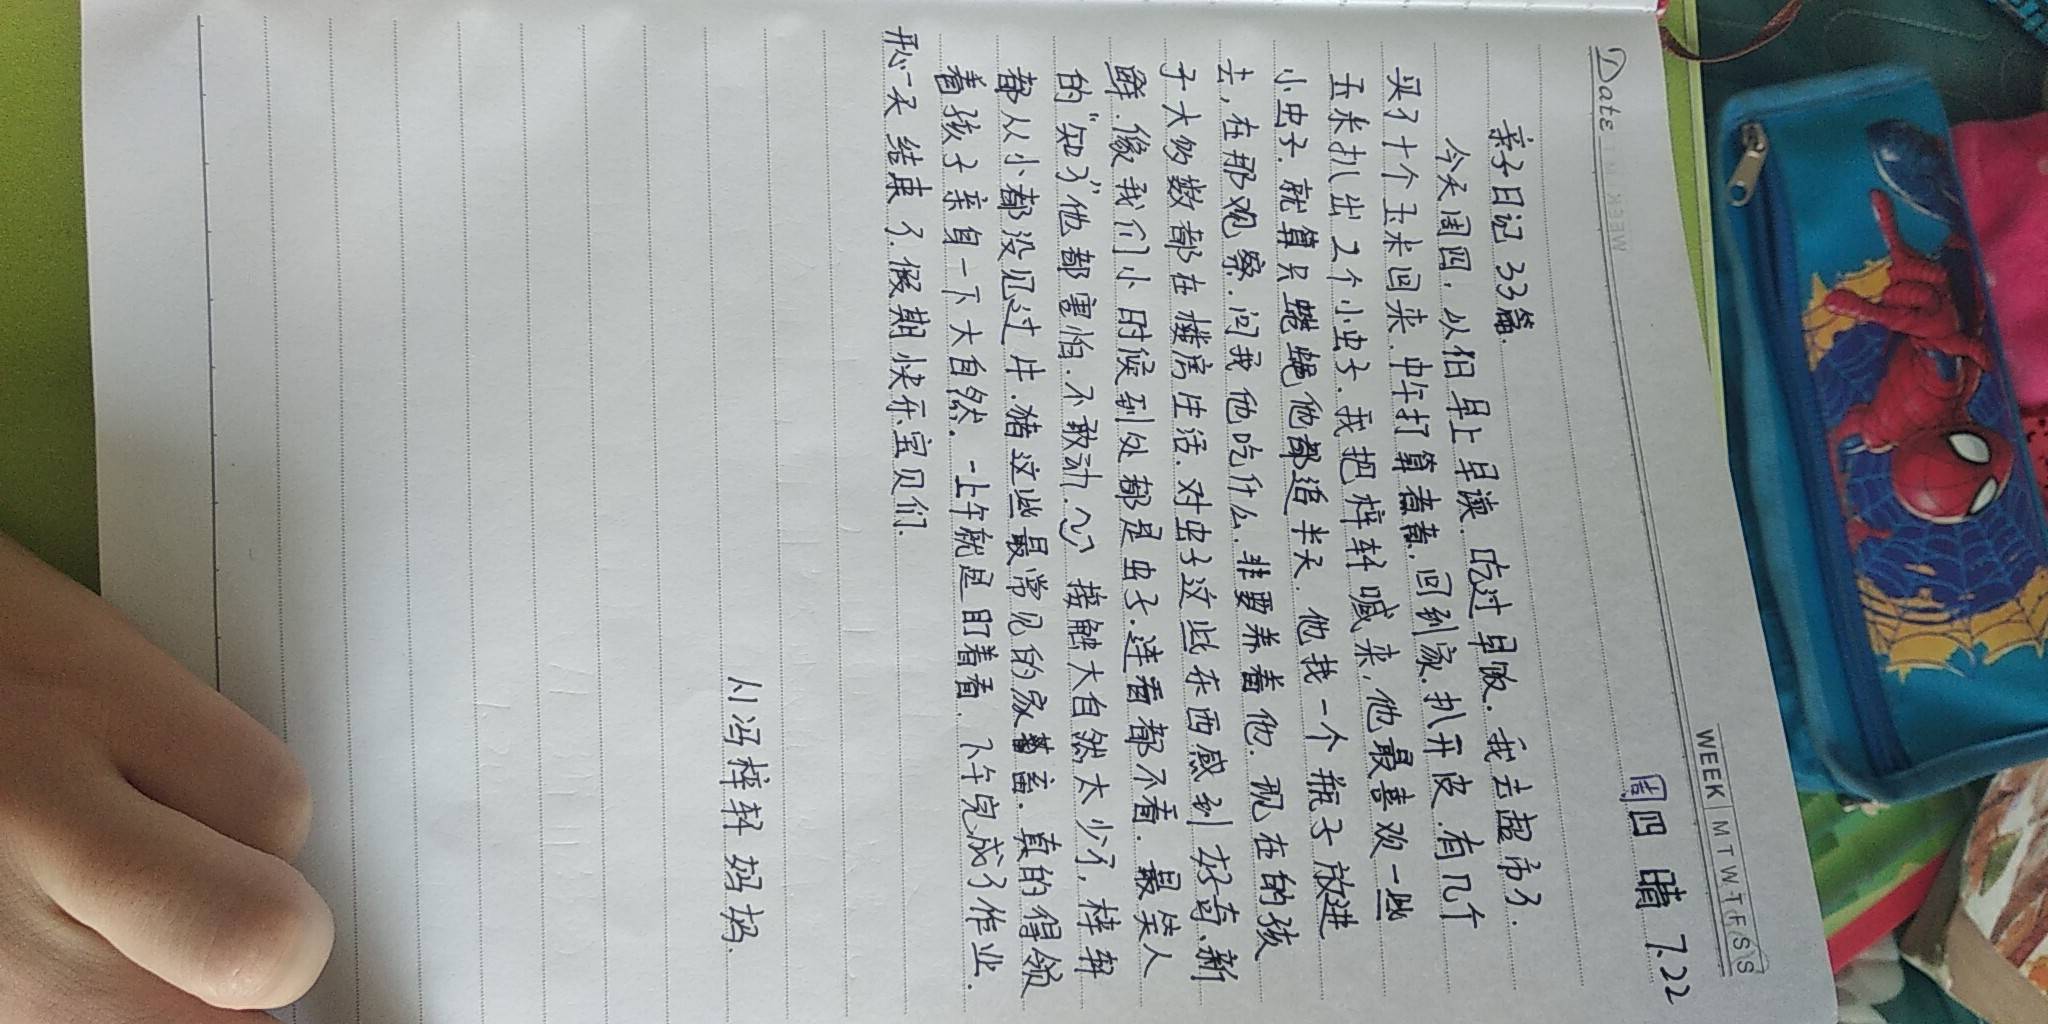 Date
WEEK M T W T F S S
周四 晴 7.22
亲子日记 33篇.
今天周四，从但早上早读.吃过早饭.我去超市了.
买了十个玉米回来.中午打算煮煮.回到家.扒开皮.有几个
玉米扒出2个小虫子.我把梓轩喊来，他最喜欢一些
小虫子.就算只蟋蟀他都追半天.他找一个瓶子放进
去，在那观察.问我他吃什么.非要养着他.现在的孩
子大多数都在楼房生活.对虫子这些东西感到好奇、新
鲜.像我们小时候到处都是虫子.连看都不看.最笑人
的“知了”他都害怕.不敢动.接触大自然太少了，梓轩
都从小都没见过牛.猪这些最常见的家畜.真的得领
着孩子亲身一下大自然.一上午就是盯着看.下午完成了作业.
开心一天结束了.假期快乐宝贝们.
小冯梓轩妈妈.